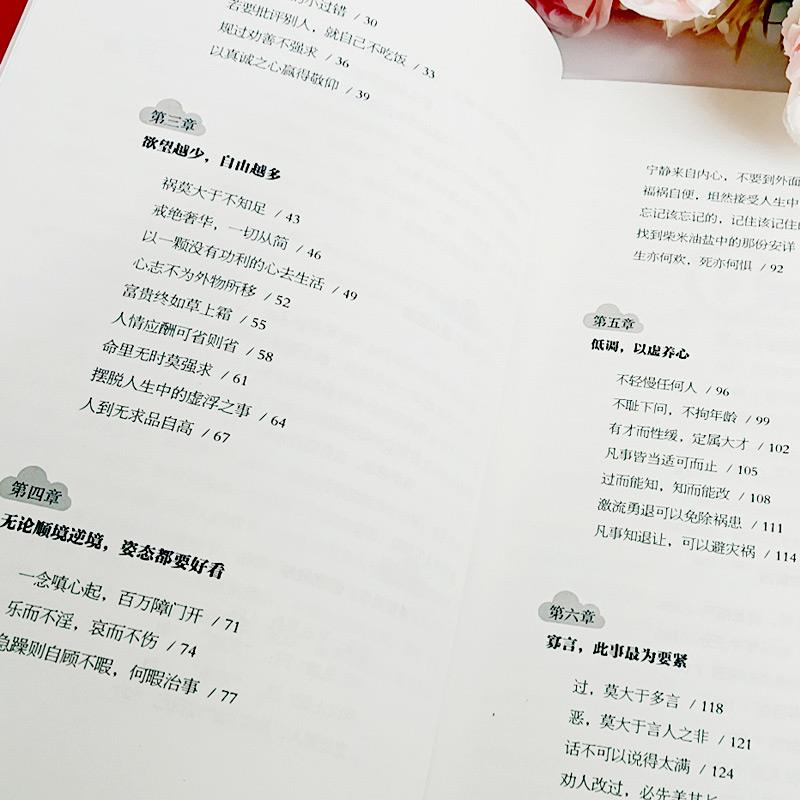 小过错 / 30
若要批评别人，就自己不吃饭 / 33
规过劝善不强求 / 36
以真诚之心赢得敬仰 / 39
第三章
欲望越少，自由越多
祸莫大于不知足 / 43
戒绝奢华，一切从简 / 46
以一颗没有功利的心去生活 / 49
心志不为外物所移 / 52
富贵终如草上霜 / 55
人情应酬可省则省 / 58
命里无时莫强求 / 61
摆脱人生中的虚浮之事 / 64
人到无求品自高 / 67
第四章
无论顺境逆境，姿态都要好看
一念嗔心起，百万障门开 / 71
乐而不淫，哀而不伤 / 74
急躁则自顾不暇，何暇治事 / 77
宁静来自内心，不要到外面
福祸自便，坦然接受人生中
忘记该忘记的，记住该记住
找到柴米油盐中的那份安详
生亦何欢，死亦何惧 / 92
第五章
低调，以虚养心
不轻慢任何人 / 96
不耻下问，不拘年龄 / 99
有才而性缓，定属大才 / 102
凡事皆当适可而止 / 105
过而能知，知而能改 / 108
激流勇退可以免除祸患 / 111
凡事知退让，可以避灾祸 / 114
第六章
寡言，此事最为要紧
过，莫大于多言 / 118
恶，莫大于言人之非 / 121
话不可以说得太满 / 124
劝人改过，必先美其长